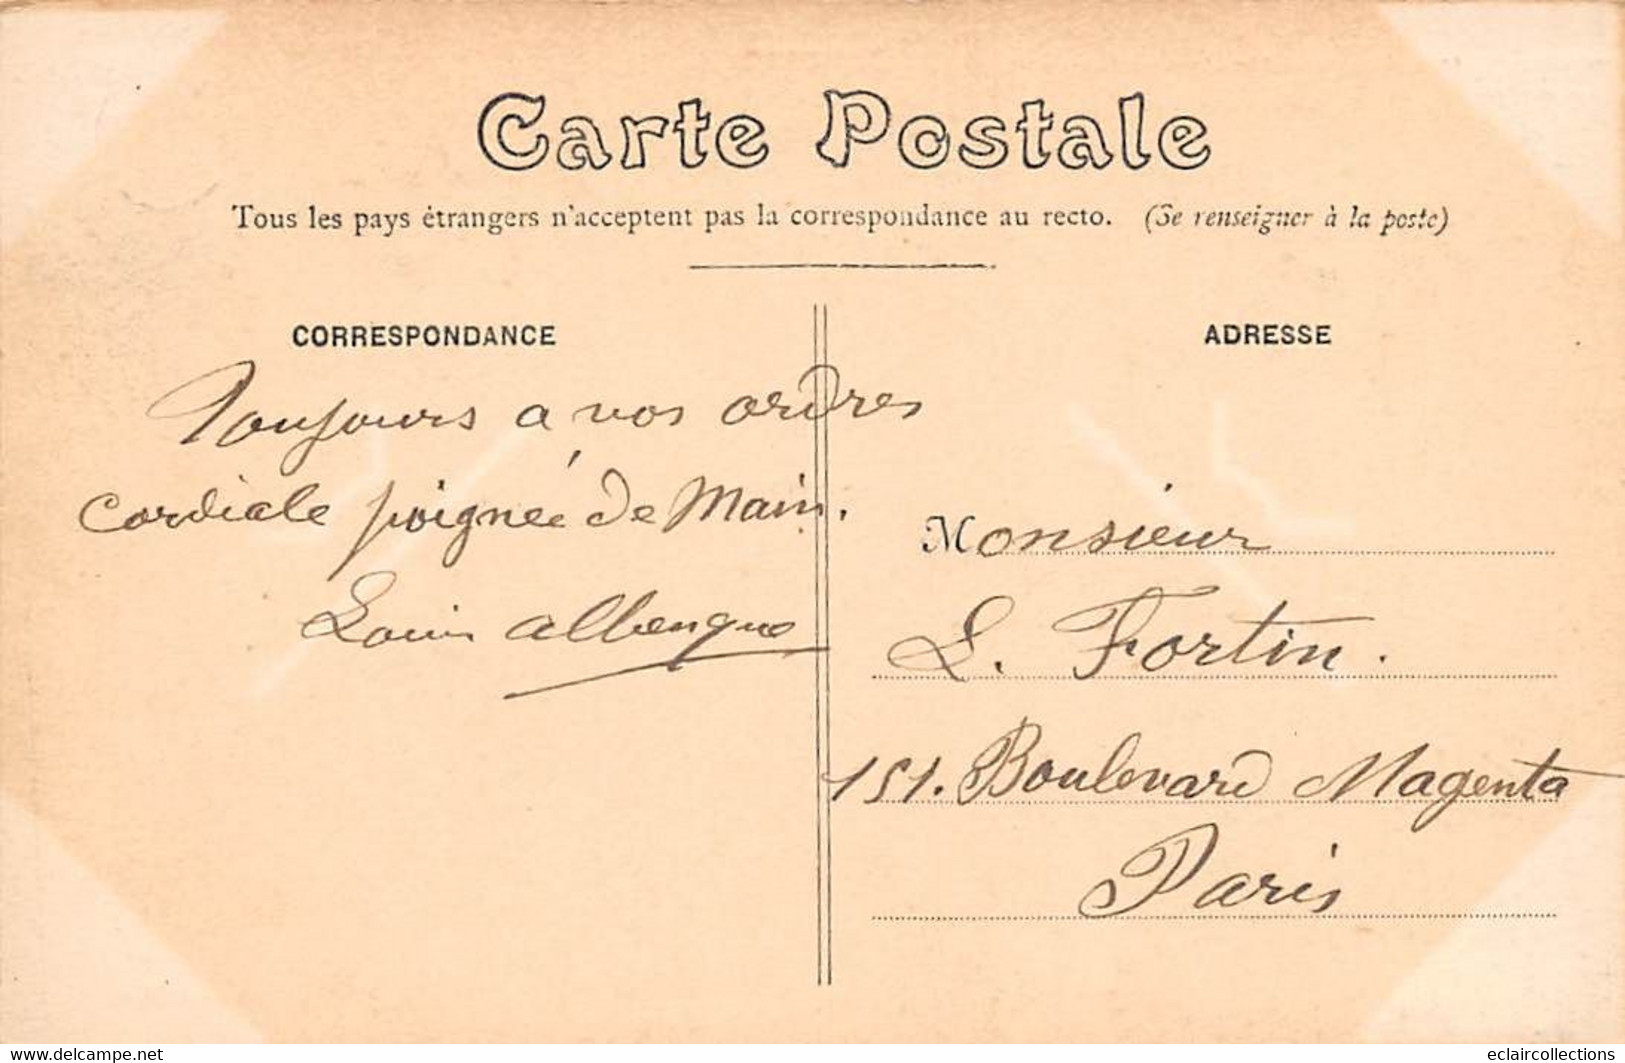 Carte Postale
Tous les pays étrangers n'acceptent pas la correspondance au recto. (Se renseigner à la poste)
CORRESPONDANCE
Toujours a vos ordres
Cordiale poignée de Main.
Louis Albengue
ADRESSE
Monsieur
L. Fortin.
151. Boulevard Magenta
Paris
www.delcampe.net
eclaircollections